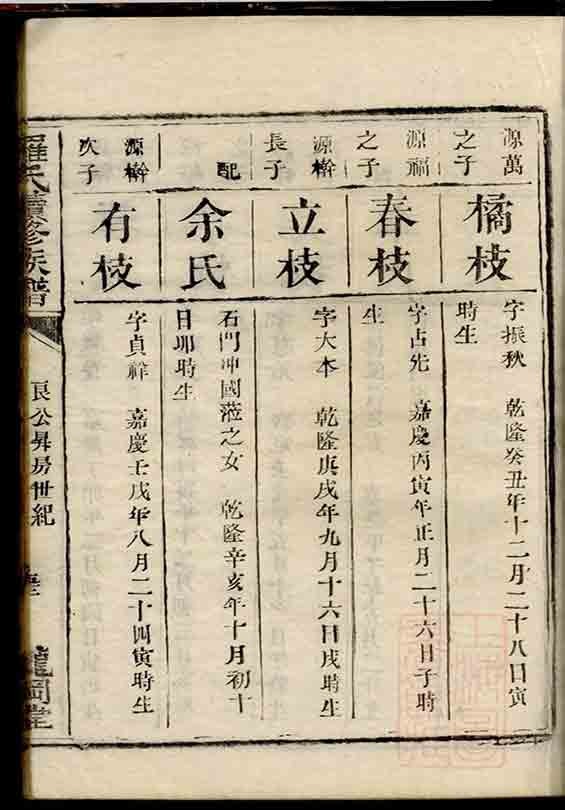 源萬
之子
橘枝
字振秋 乾隆癸丑年十二月二十八日寅
時生
源福
之子
春枝
字占先 嘉慶丙寅年正月二十六日子時
生
源檊
長子
立枝
字大本 乾隆庚戌年九月十六日戌時生
配
余氏
石門冲國蒞之女 乾隆辛亥年十月初十
日卯時生
源檊
次子
有枝
字貞祥 嘉慶壬戌年八月二十四寅時生
羅氏續修族譜
良公昇房世紀
龍岡堂